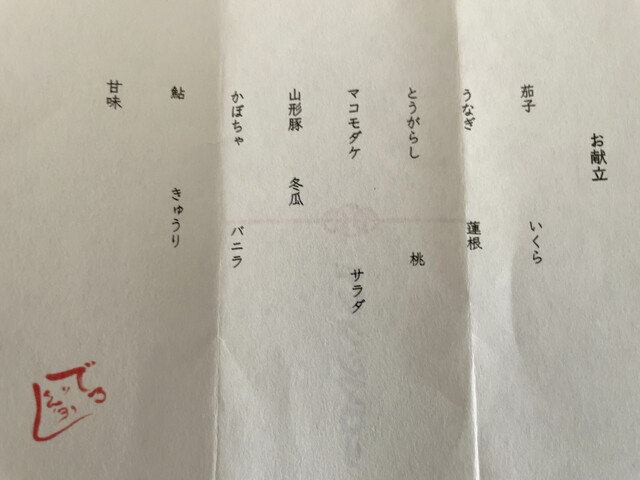 お献立
茄子 いくら
うなぎ 蓮根
とうがらし 桃
マコモダケ サラダ
山形豚 冬瓜
かぼちゃ バニラ
鮎 きゅうり
甘味